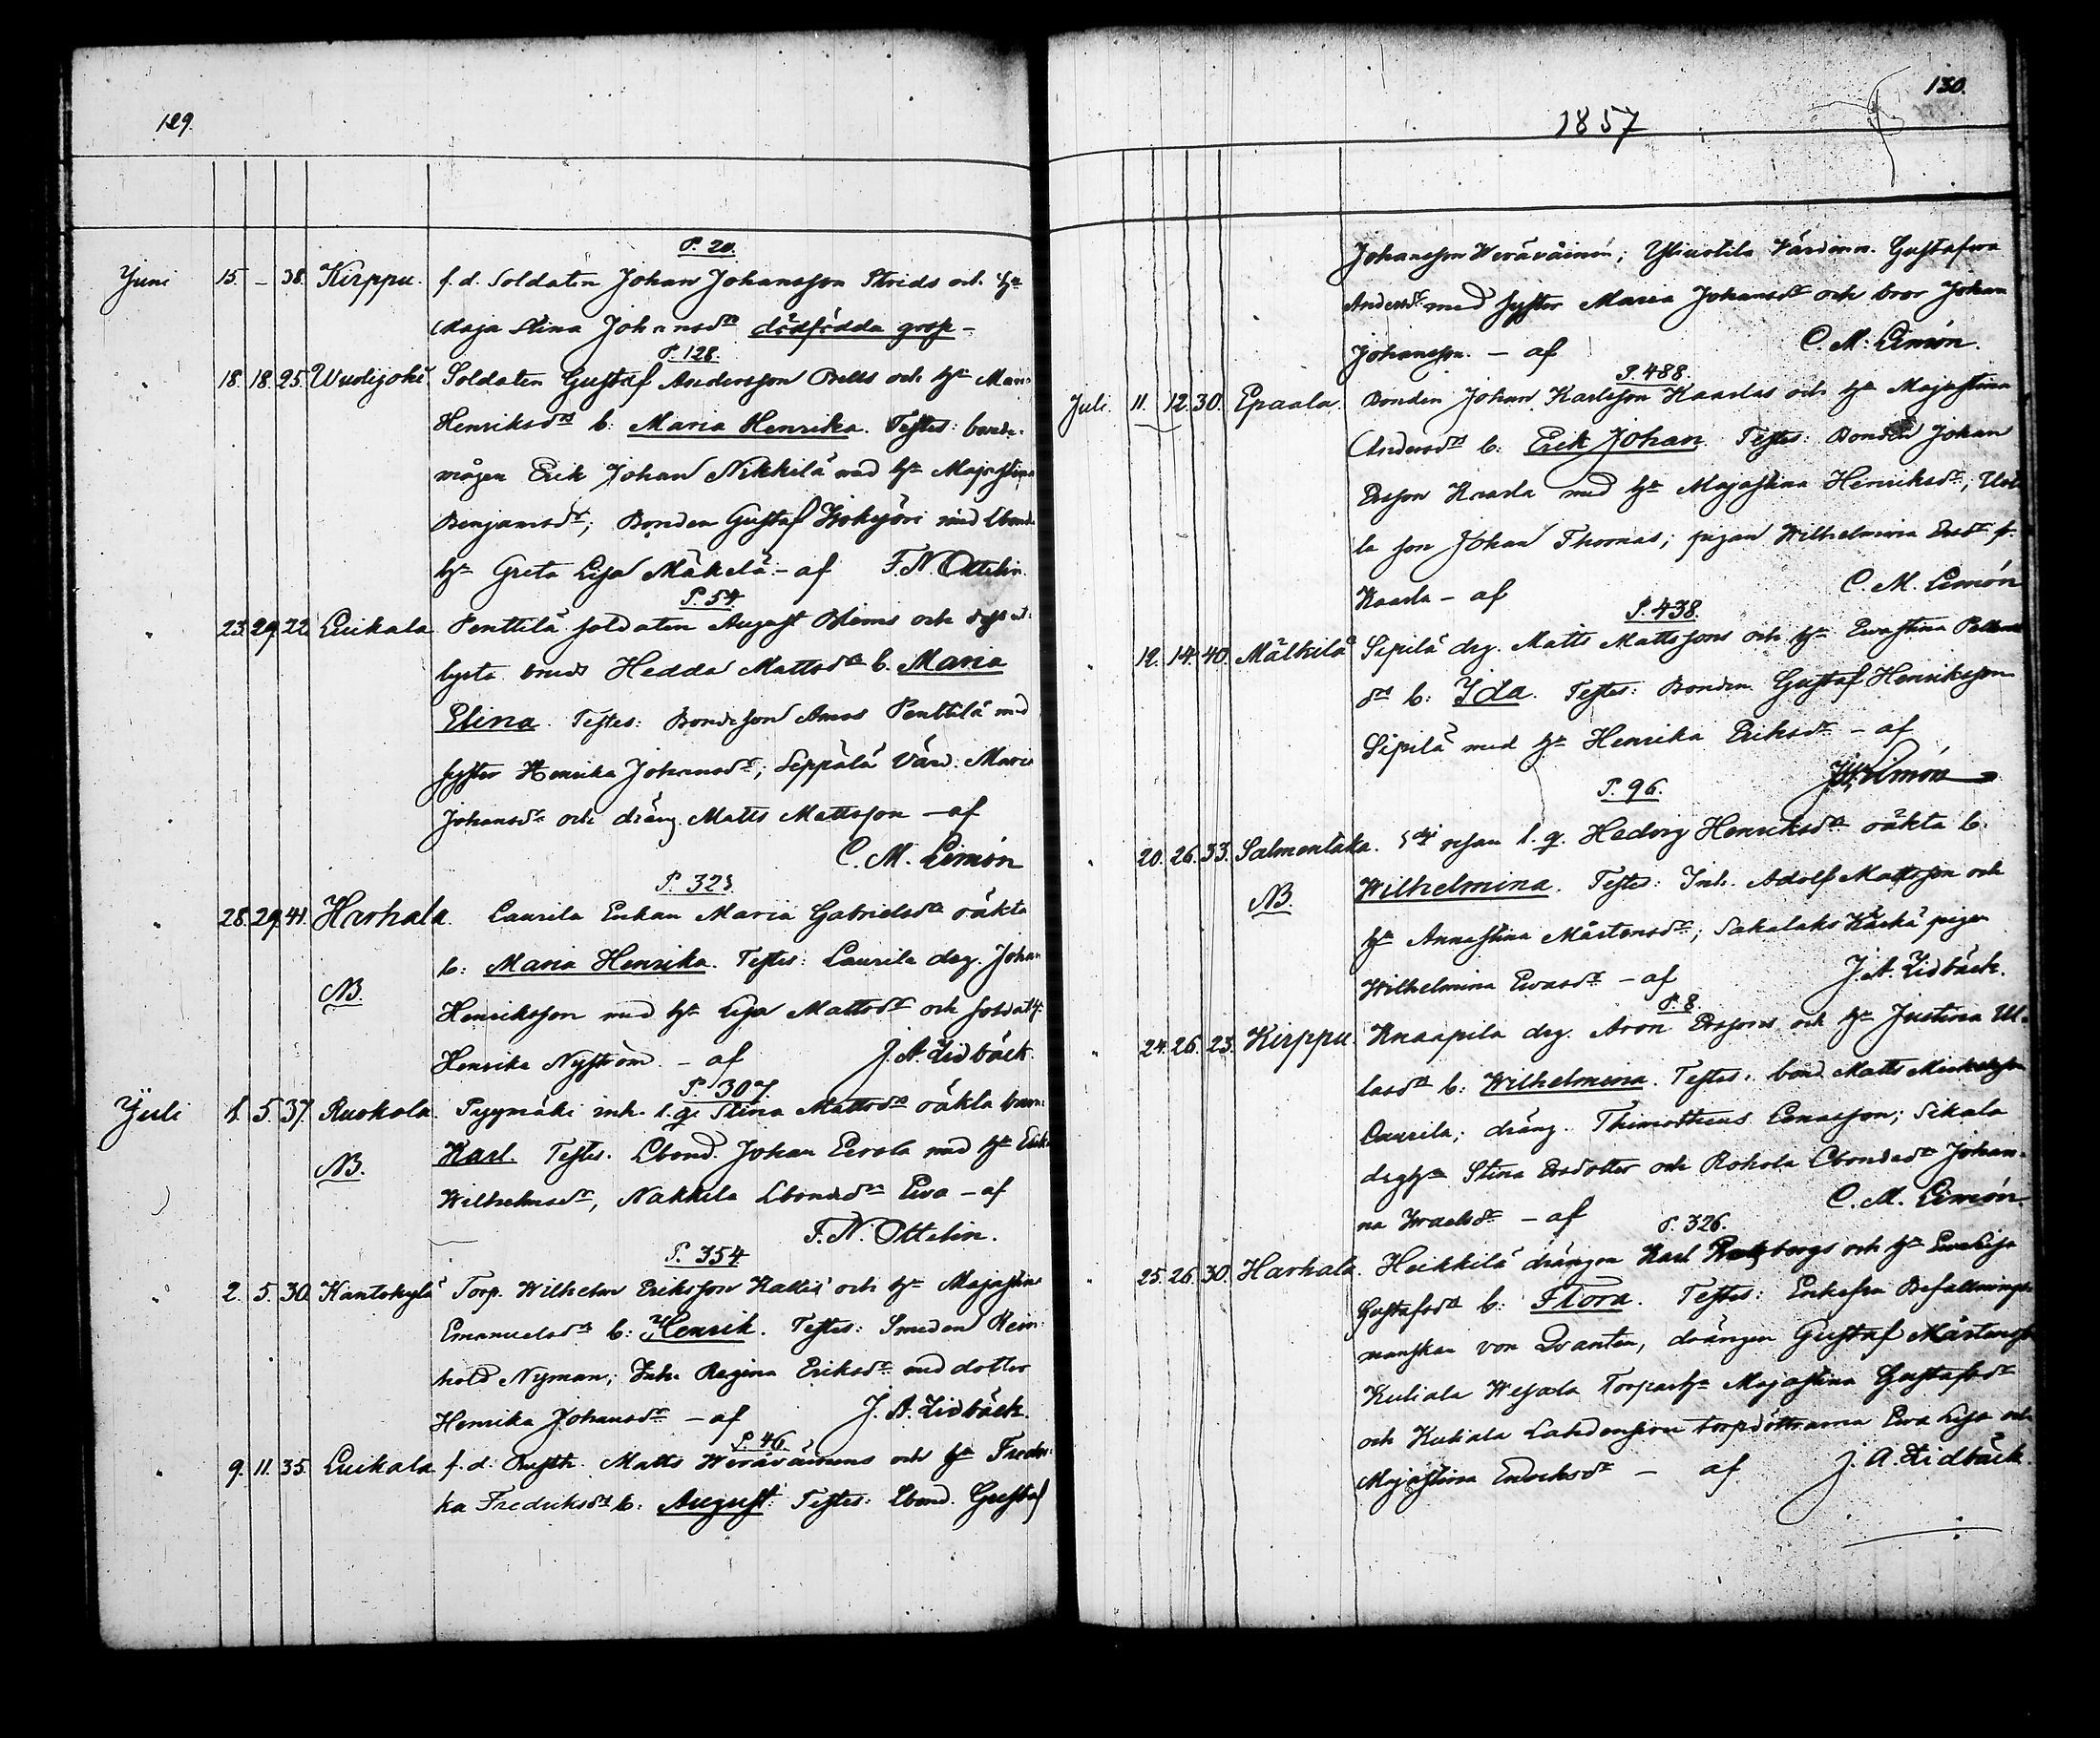 129.
P. 20.
Juni 15. – 38. Kirppu. f. d. Soldaten Johan Johansson Strids och hu
Maja Stina Johansdr dödfödda gosse –
P. 128.
" 18. 18. 25. Wudijoki Soldaten Gustaf Andersson och hu Maria
Henriksdr b: Maria Henrika. Testes: bonde-
mågen Erik Johan Nikkilä med hu Majastina
Benjamsdr; Bonden Gustaf med Lbonde
hu Greta Lisa Mäkelä – af F. N. Ottelin.
P. 54
" 23. 29. 22 Luikala Penttilä soldaten August och
lysta brud Hedda Mattsdr b. Maria
Elina. Testes: Bondeson Amos Penttilä med
syster Henrika Johansdr; Seppälä Värd. Maria
Johansdr och dräng Matts Mattsson – af
C. M. Limón
P. 325.
" 28. 29. 41. Harhala. Laurila Enkan Maria Gabrielsdr oäkta
NB. b: Maria Henrika. Testes: Laurila drg. Johan
Henriksson med hu Lisa Mattsdr och
Henrika Nyström – af J. A. Lidbäck.
P. 307.
Juli 1. 5. 37. Ruokola. Pyynäki inh. l. q. Stina Mattsdr oäkta barn:
NB. Karl. Testes. Lbond. Johan Eerola med hu
Wilhelmsdr, Nakkila Lbondsdr Ewa – af
F. N. Ottelin.
P. 354
" 2. 5. 30 Kantokylä Torp. Wilhelm Eriksson och hu Majastina
Emanuelsdr b: Henrik. Testes: Smeden Rein-
hold Nyman; Inh. Regina Eriksdr med dotter
Henrika Johansdr – af J. A. Lidbäck.
P. 46.
" 9. 11. 35. Luikala f. d. Rusth. Matts Weräväinens och hu Fredri-
ka Fredriksdr b: August. Testes: Lbond. Gustaf
130.
1857
Johansson Weräväinen; Värdinn. Gustafwa
Andersdr med syster Maria Johansdr och bror Johan
Johansson. – af C. M. Limón.
P. 488.
Juli. 11. 12. 30. Epaala. Bonden Johan Karlsson Kaarlas och hu Majastina
Andersdr b: Erik Johan. Testes: Bonden Johan
Ersson Kaarla med hu Majastina Henriksdr;
la son Johan Thomas; pigan Wilhelmina Ersdr fr.
Kaarla – af C. M. Limón
P. 438.
" 12. 14. 40. Mälkilä Sipilä drg. Matts Mattssons och hu Ewastina
dr b: Ida. Testes: Bonden Gustaf Henriksson
Sipilä med hu Henrika Eriksdr – af
Limón
P. 96.
" 20. 26. 33. Salmentaka. resan l. q. Hedvig Henriksdr oäkta b.
NB. Wilhelmina. Testes: Inh. Adolf Mattsson och
hu Annastina Mårtensdr; pigan
Wilhelmina Ewasdr – af J. A. Lidbäck.
P. 8.
" 24. 26. 23. Kirppu. Knaapila drg. Aron Erssons och hu Justina Ul-
lasdr b: Wilhelmina. Testes: bond. Matts
Laurila; dräng. Thimotheus; Sikala
drghu Stina Ersdotter och Rohola Lbondsdr Johan-
na – af C. M. Limón.
P. 326.
" 25. 26. 30. Harhala. Heikkilä drängen Karl och hu Ewalisa
Gustafsdr b: Flora. Testes: Enkefru Befallnings-
manskan von Qvanten, drängen Gustaf Mårtensson
Kuliala Torparhu Majastina Gustafsdr
och Kuliala torpdöttrarna Ewa Lisa och
Majastina Henriksdr – af J. A. Lidbäck.